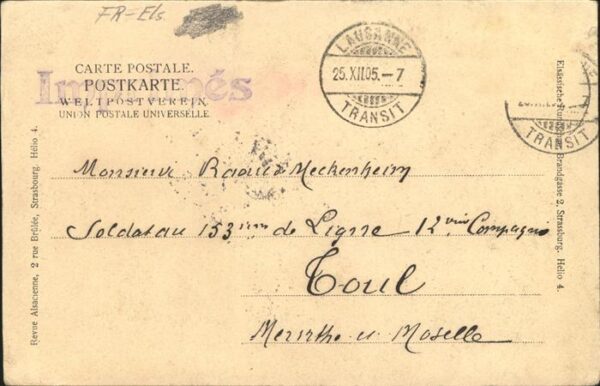 FR-Els.
CARTE POSTALE.
POSTKARTE
WELTPOSTVEREIN
UNION POSTALE UNIVERSELLE
Imprimés
LAUSANNE
25.XII.05.-7
TRANSIT
TRANSIT
Monsieur Raoul Meckenheim
Soldat au 153 ième de Ligne 12 ème Compagnie
Toul
Meurthe et Moselle
Revue Alsacienne, 2 rue Brûlée, Strasbourg. Hélio 4.
Elsässische Brandgasse 2, Strassburg. Helio 4.